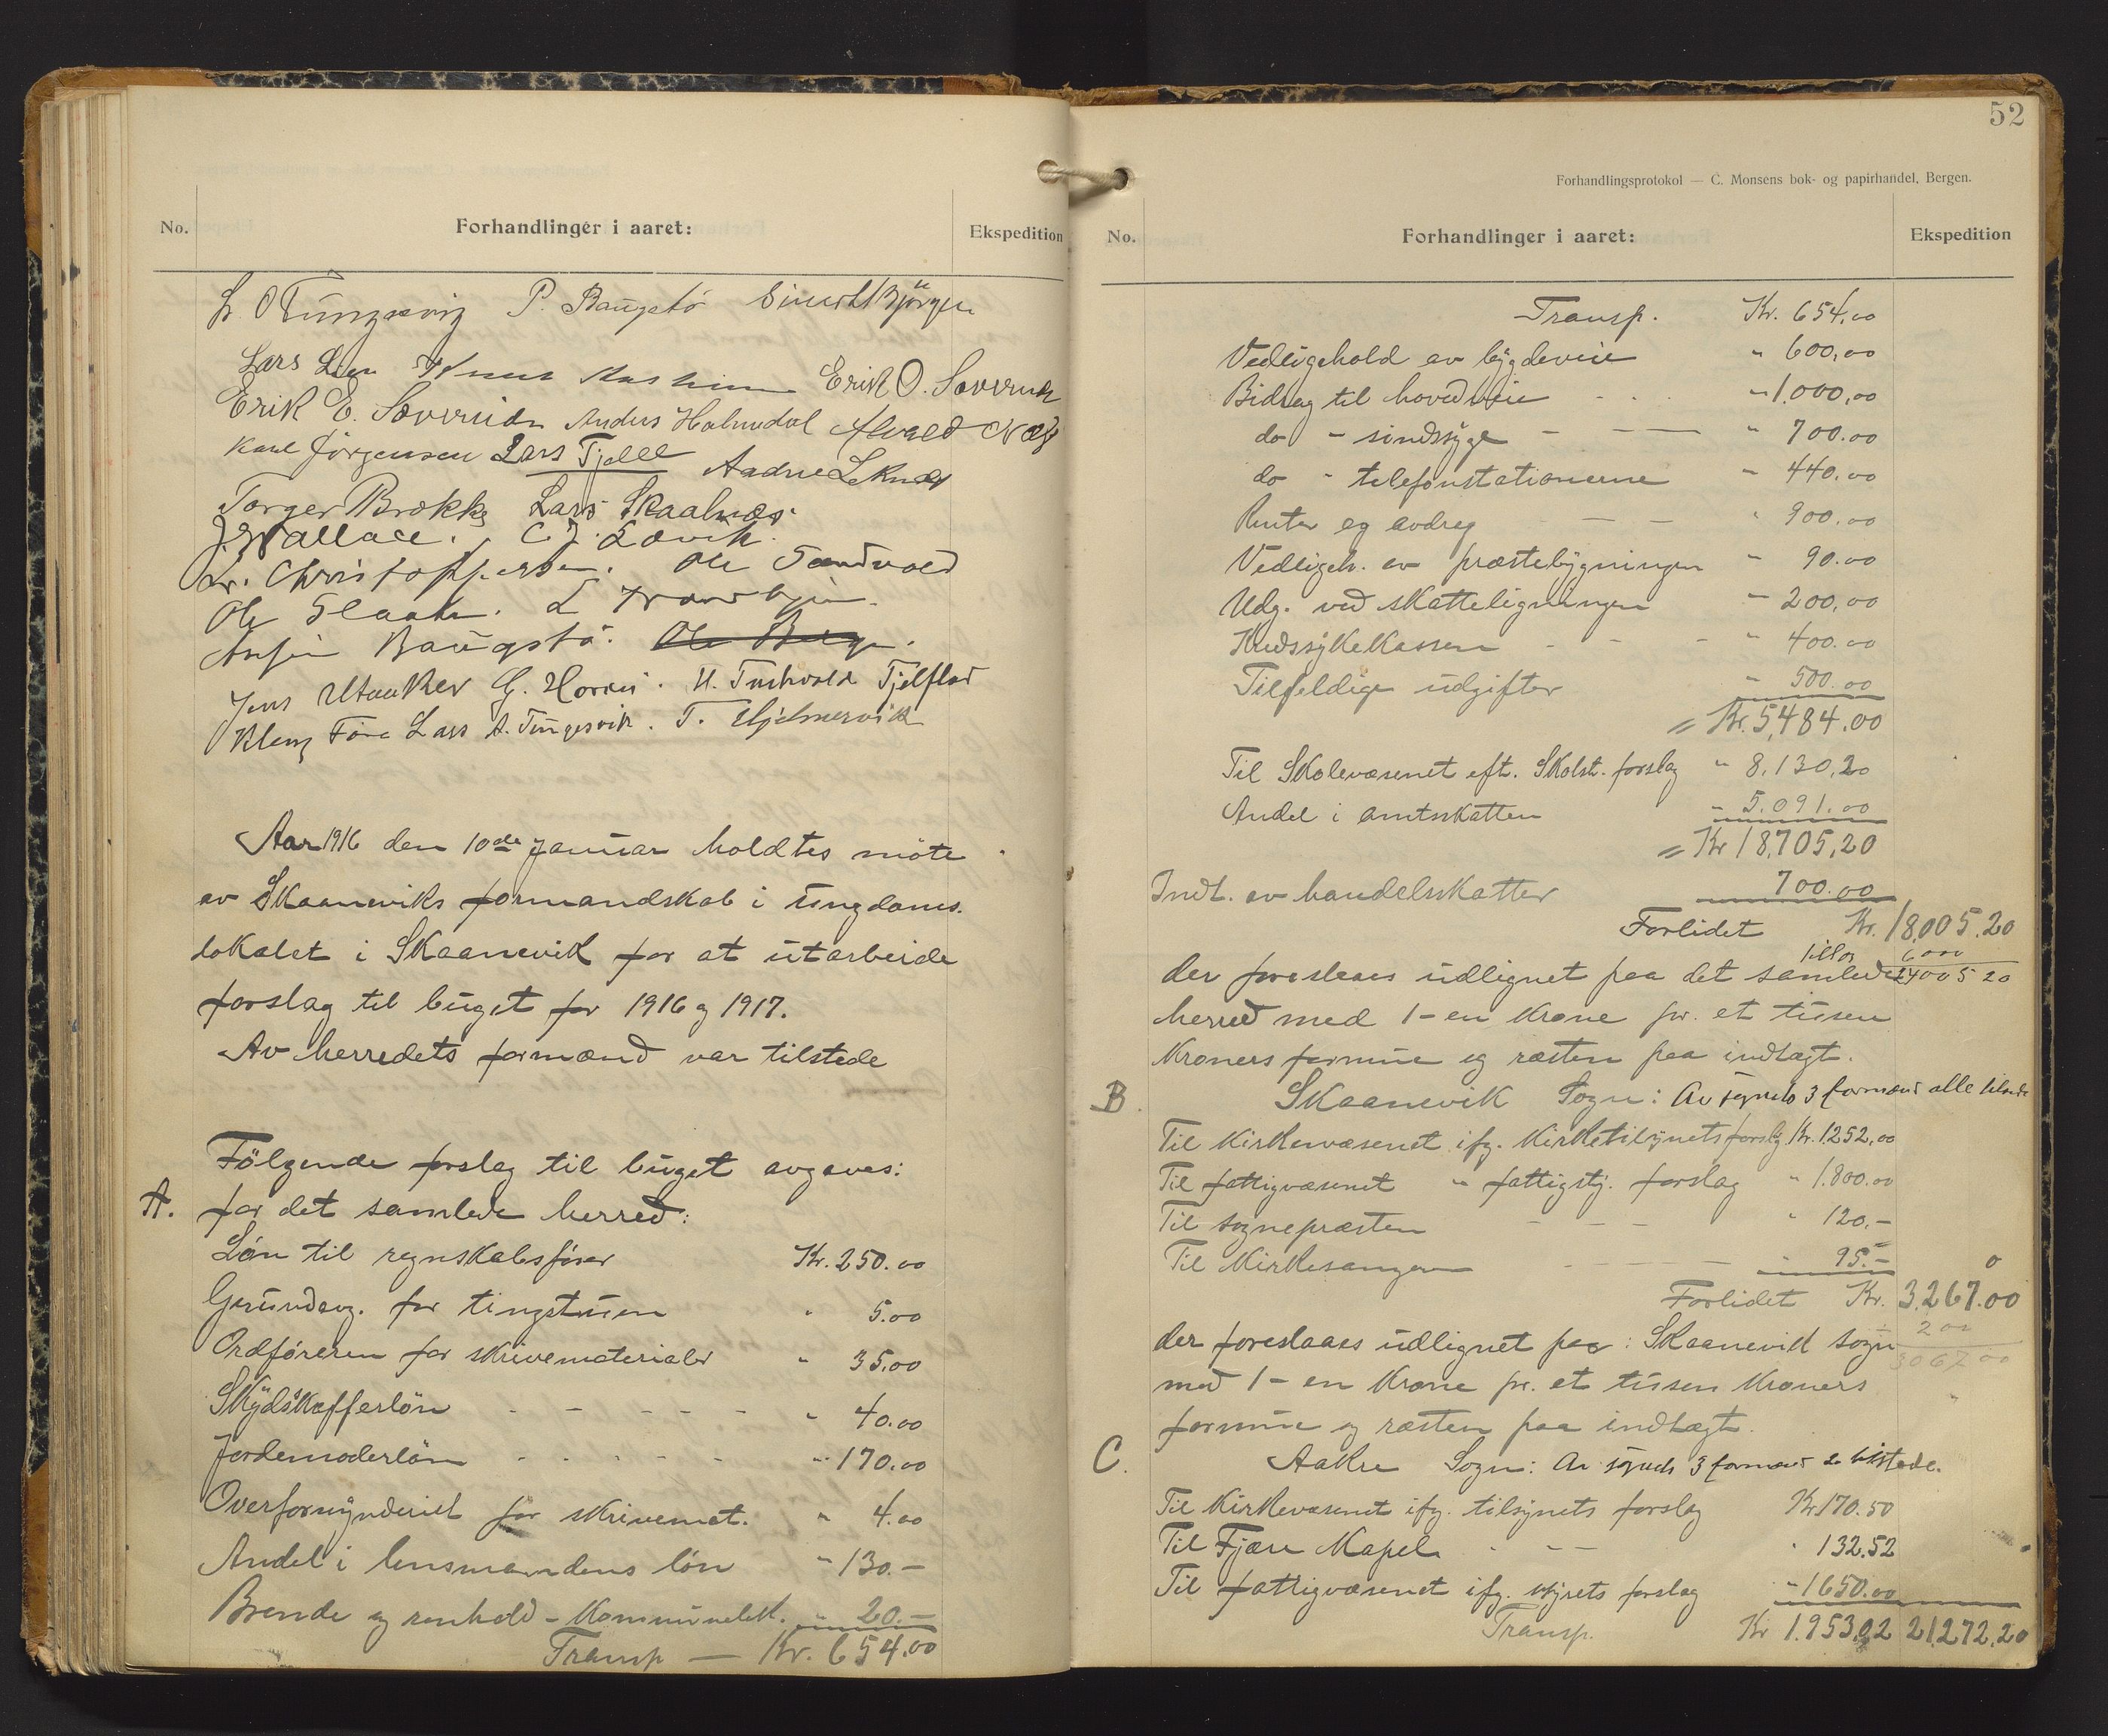 No.
Forhandlinger i aaret:
Ekspedition
L. O Tungesvig P. Baugstø Einert Bjørgen
Lars Lien Knut Erik O. Sæverud
Erik E. Sæverud Anders Holmedal Næs
Karl Jørgensen Lars Fjelle Andrue Leknes
Torger Brække Lars Skaalnæs
J. Wallace. C. J. Løvik.
Chr. Christophersen. Ole Sandvold
Ole
Baugstø. Ole
Jens Utaaker G. Hovda. H. Tveitvold Tjelflat
Klem Føre Lars A. Tungesvik. T. Hjelmervik
Aar 1916 den 10de Januar holdtes møte
av Skaaneviks formandskab i ungdoms-
lokalet i Skaanevik for at utarbeide
forslag til buget for 1916 og 1917.
Av herredets formænd var tilstede
Følgende forslag til buget avgaves:
A. for det samlede herred:
Løn til regnskabsfører Kr. 250.00
Grundavg. for tingstuen " 5.00
Ordføreren for skrivematerialer " 35.00
Skydsskafferløn - - - - - " 40.00
Jordemoderløn - - - - - " 170.00
Overformynderiet for skrivemat. " 4.00
Andel i lensmandens løn " 130.-
Brende og renhold - Kommunelok. " 20.-
Transp — Kr. 654.00
52
Forhandlingsprotokol — C. Monsens bok- og papirhandel, Bergen.
No.
Forhandlinger i aaret:
Ekspedition
Transp. Kr. 654,00
Vedligehold av bygdeveie " 600,00
Bidrag til hovedveie - - " 1.000,00
do - sindssyge - - — " 700.00
do - telefonstationerne " 440.00
Renter og avdrag — — " 900.00
Vedligeh. av præstebygningen " 90.00
Udg. ved skatteligningen " 200,00
Kredssykekassen - - " 400.00
Tilfeldige udgifter " 500.00
= Kr. 5,484.00
Til Skolevæsenet eft. Skolst. forslag " 8.130,20
Andel i amtsskatten " 5.091.00
= Kr 18,705,20
Indt. av handelsskatter 700.00
Forlidet Kr. 18,005.20
6000
der foreslaaes udlignet paa det samlede 24005 20
herred med 1 - en Krone pr. et tusen
Kroners formue og resten paa indtægt.
B. Skaanevik Sogn: Av sognets 3 formænd alle tilstede
Til Kirkevæsenet ifg. Kirketilsynets forslg Kr. 1252,00
Til fattigvæsenet " fattigstyr. forslag " 1.800.00
Til sognepræsten - - - " 120.-
Til Kirkesangeren - - - - " 95.- 0
Forlidet Kr. 3,267.00
200
der foreslaaes udlignet paa: Skaanevik sogn 3067 00
med 1 - en Krone pr. et tusen Kroners
formue og resten paa indtægt.
C. Aakre Sogn: Av sognets 3 formænd 2 tilstede.
Til Kirkevæsenet ifg. tilsynets forslag Kr 170.50
Til Fjære Kapel - - - " 132.52
Til fattigvæsenet ifg. styrets forslag " 1650.00
Transp. Kr 1.953,02 21,272,20